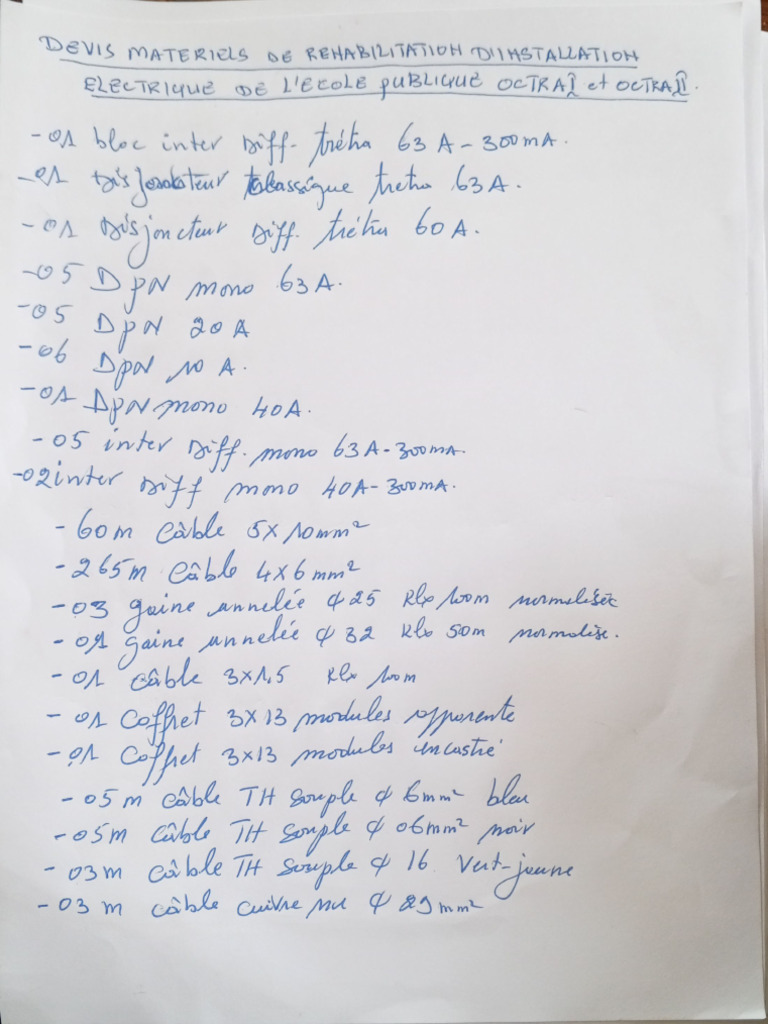 DEVIS MATERIELS DE REHABILITATION D'INSTALLATION
ELECTRIQUE DE L'ECOLE PUBLIQUE OCTRA I et OCTRA II.
- 01 bloc inter Diff. trétra 63 A - 300 mA.
- 01 Disjoncteur classique tretra 63 A.
- 01 Disjoncteur Diff. trétra 60 A.
- 05 DPN mono 63 A.
- 05 DPN 20 A
- 06 DPN 10 A.
- 01 DPN mono 40A.
- 05 inter Diff. mono 63A - 300mA.
- 02 inter Diff mono 40A - 300mA.
- 60m Câble 5 x 10mm²
- 265m Câble 4 x 6 mm²
- 03 gaine annelée ¢ 25 Rlx 100m normalisée
- 01 gaine annelée ¢ 32 Rlx 50m normalise.
- 01 câble 3 x 1,5 Rlx 100m
- 01 Coffret 3 x 13 modules apparente
- 01 Coffret 3 x 13 modules encastré
- 05 m câble TH souple ¢ 6mm² bleu
- 05m câble TH souple ¢ 06mm² noir
- 03 m câble TH souple ¢ 16 Vert-jaune
- 03 m câble cuivre nu ¢ 29 mm²